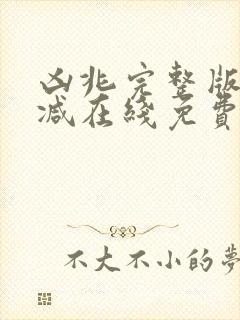 凶兆完整版
减在綫免費
不大不小的夢